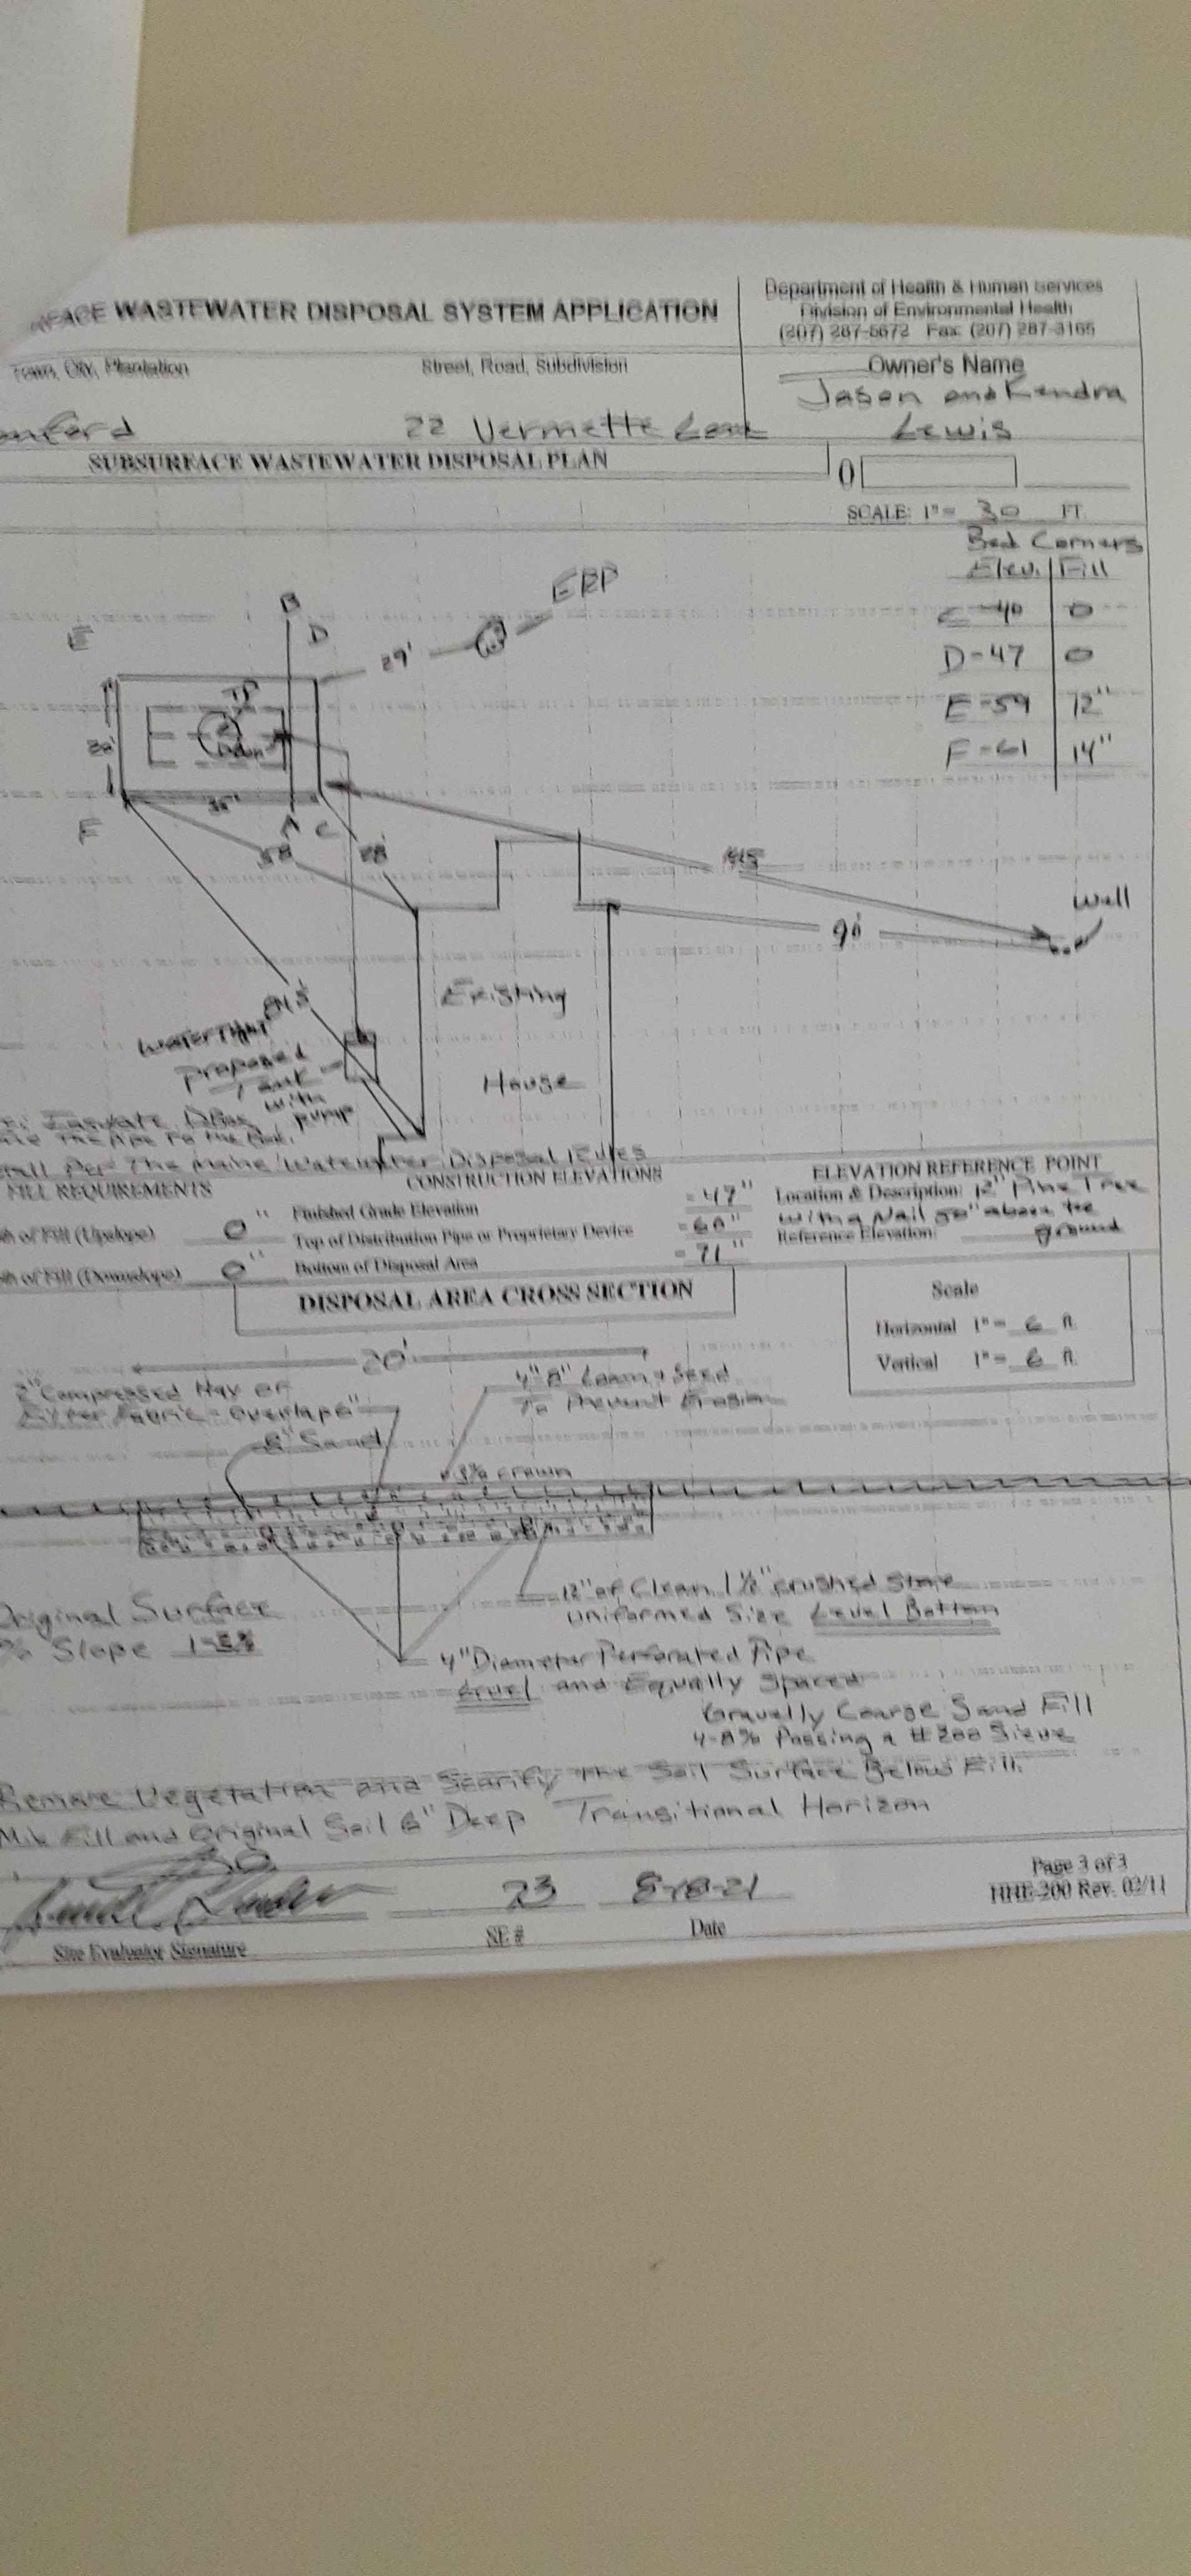 WASTEWATER DISPOSAL SYSTEM APPLICATION
Department of Health & Human Services
Division of Environmental Health
(207) 287-5672 Fax: (207) 287-3165
Town, City, Plantation
Street, Road, Subdivision
Owner's Name
Jason and Kendra
22 Vermette Lane
Lewis
SUBSURFACE WASTEWATER DISPOSAL PLAN
0
SCALE: 1" = 30 FT.
Bed Corners
Elev. Fill
C-40 0
D-47 0
E-59 12"
F-61 14"
ERP
B
D
E
29'
35'
F
A C
58'
28'
Well
90'
Existing
House
Watertight
Proposed
Tank
with
pump
Per The Maine Wastewater Disposal Rules
FILL REQUIREMENTS
CONSTRUCTION ELEVATIONS
ELEVATION REFERENCE POINT
of Fill (Upslope) 0"
of Fill (Downslope) 0"
Finished Grade Elevation -47"
Top of Distribution Pipe or Proprietary Device -60"
Bottom of Disposal Area -71"
Location & Description: 12" Pine Tree
with a Nail 50" above the
Reference Elevation: ground
DISPOSAL AREA CROSS SECTION
Scale
Horizontal 1" = 6 ft.
Vertical 1" = 6 ft.
20'
2" Compressed Hay or
Filter Fabric - overlap 6"
8" Sand
4"-8" Loam & Seed
To Prevent Erosion
3% crown
12" of Clean 1½" crushed Stone
Uniformed Size Level Bottom
Original Surface
% Slope
4" Diameter Perforated Pipe
Level and Equally Spaced
Gravelly Coarse Sand Fill
4-8% Passing a #200 Sieve
Remove Vegetation and Scarify The Soil Surface Below Fill.
Mix Fill and Original Soil 6" Deep Transitional Horizon
23
8-18-21
Site Evaluator Signature
SE #
Date
Page 3 of 3
HHE-200 Rev. 02/11